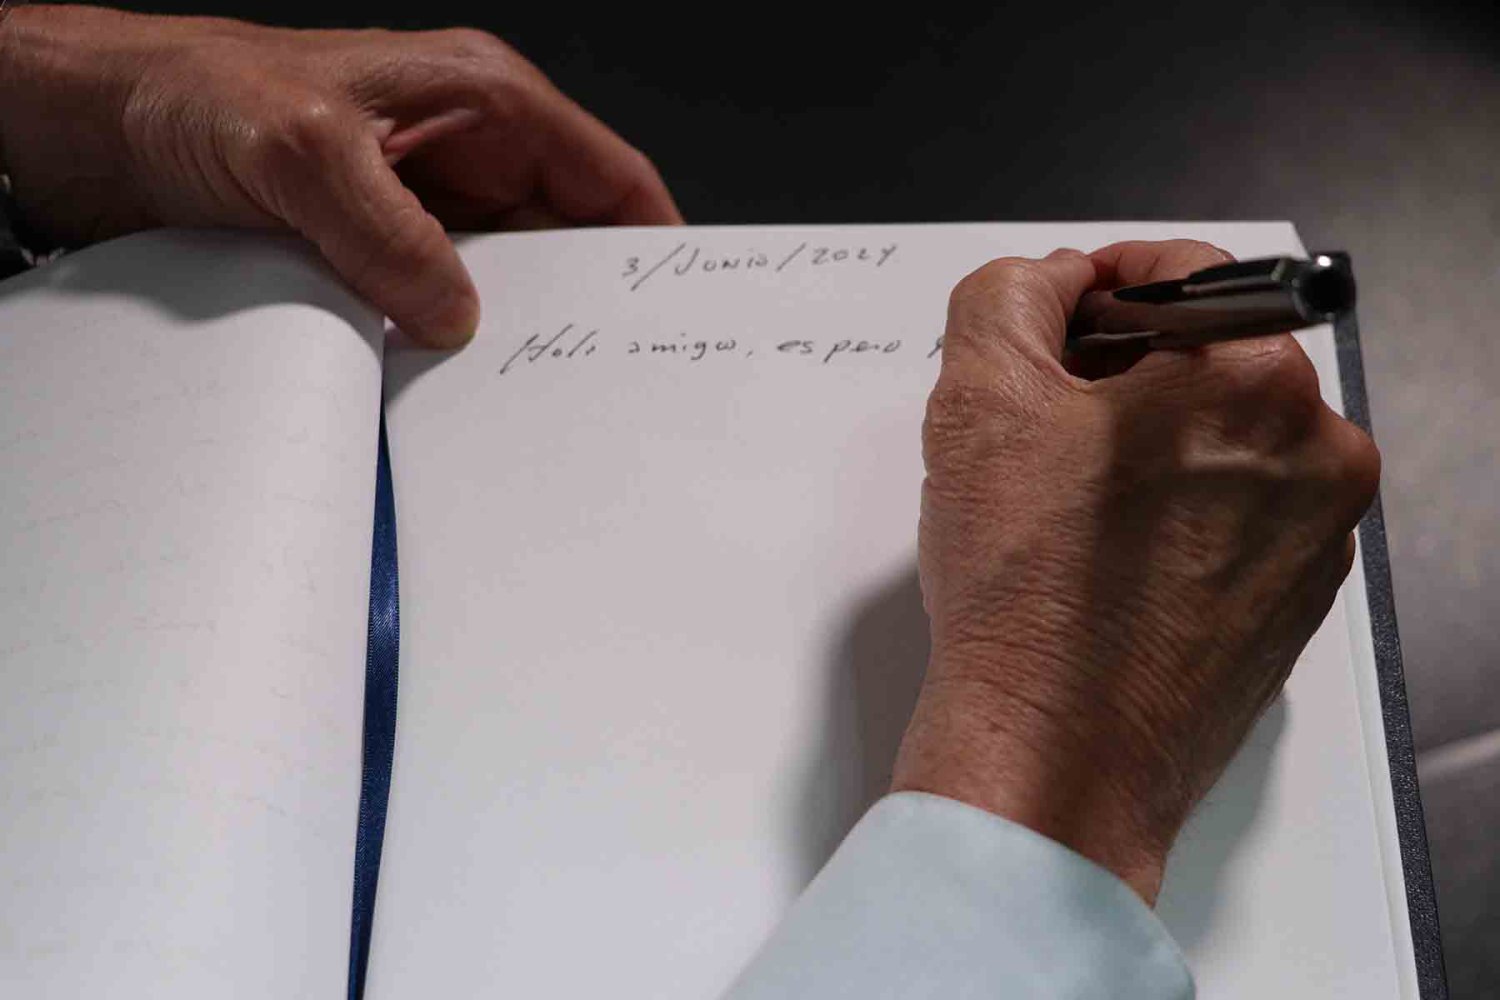 3/Junio/2024
Hola amigos, espero